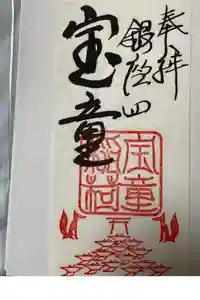 奉拝
銀座四
宝童
宝童
稲荷